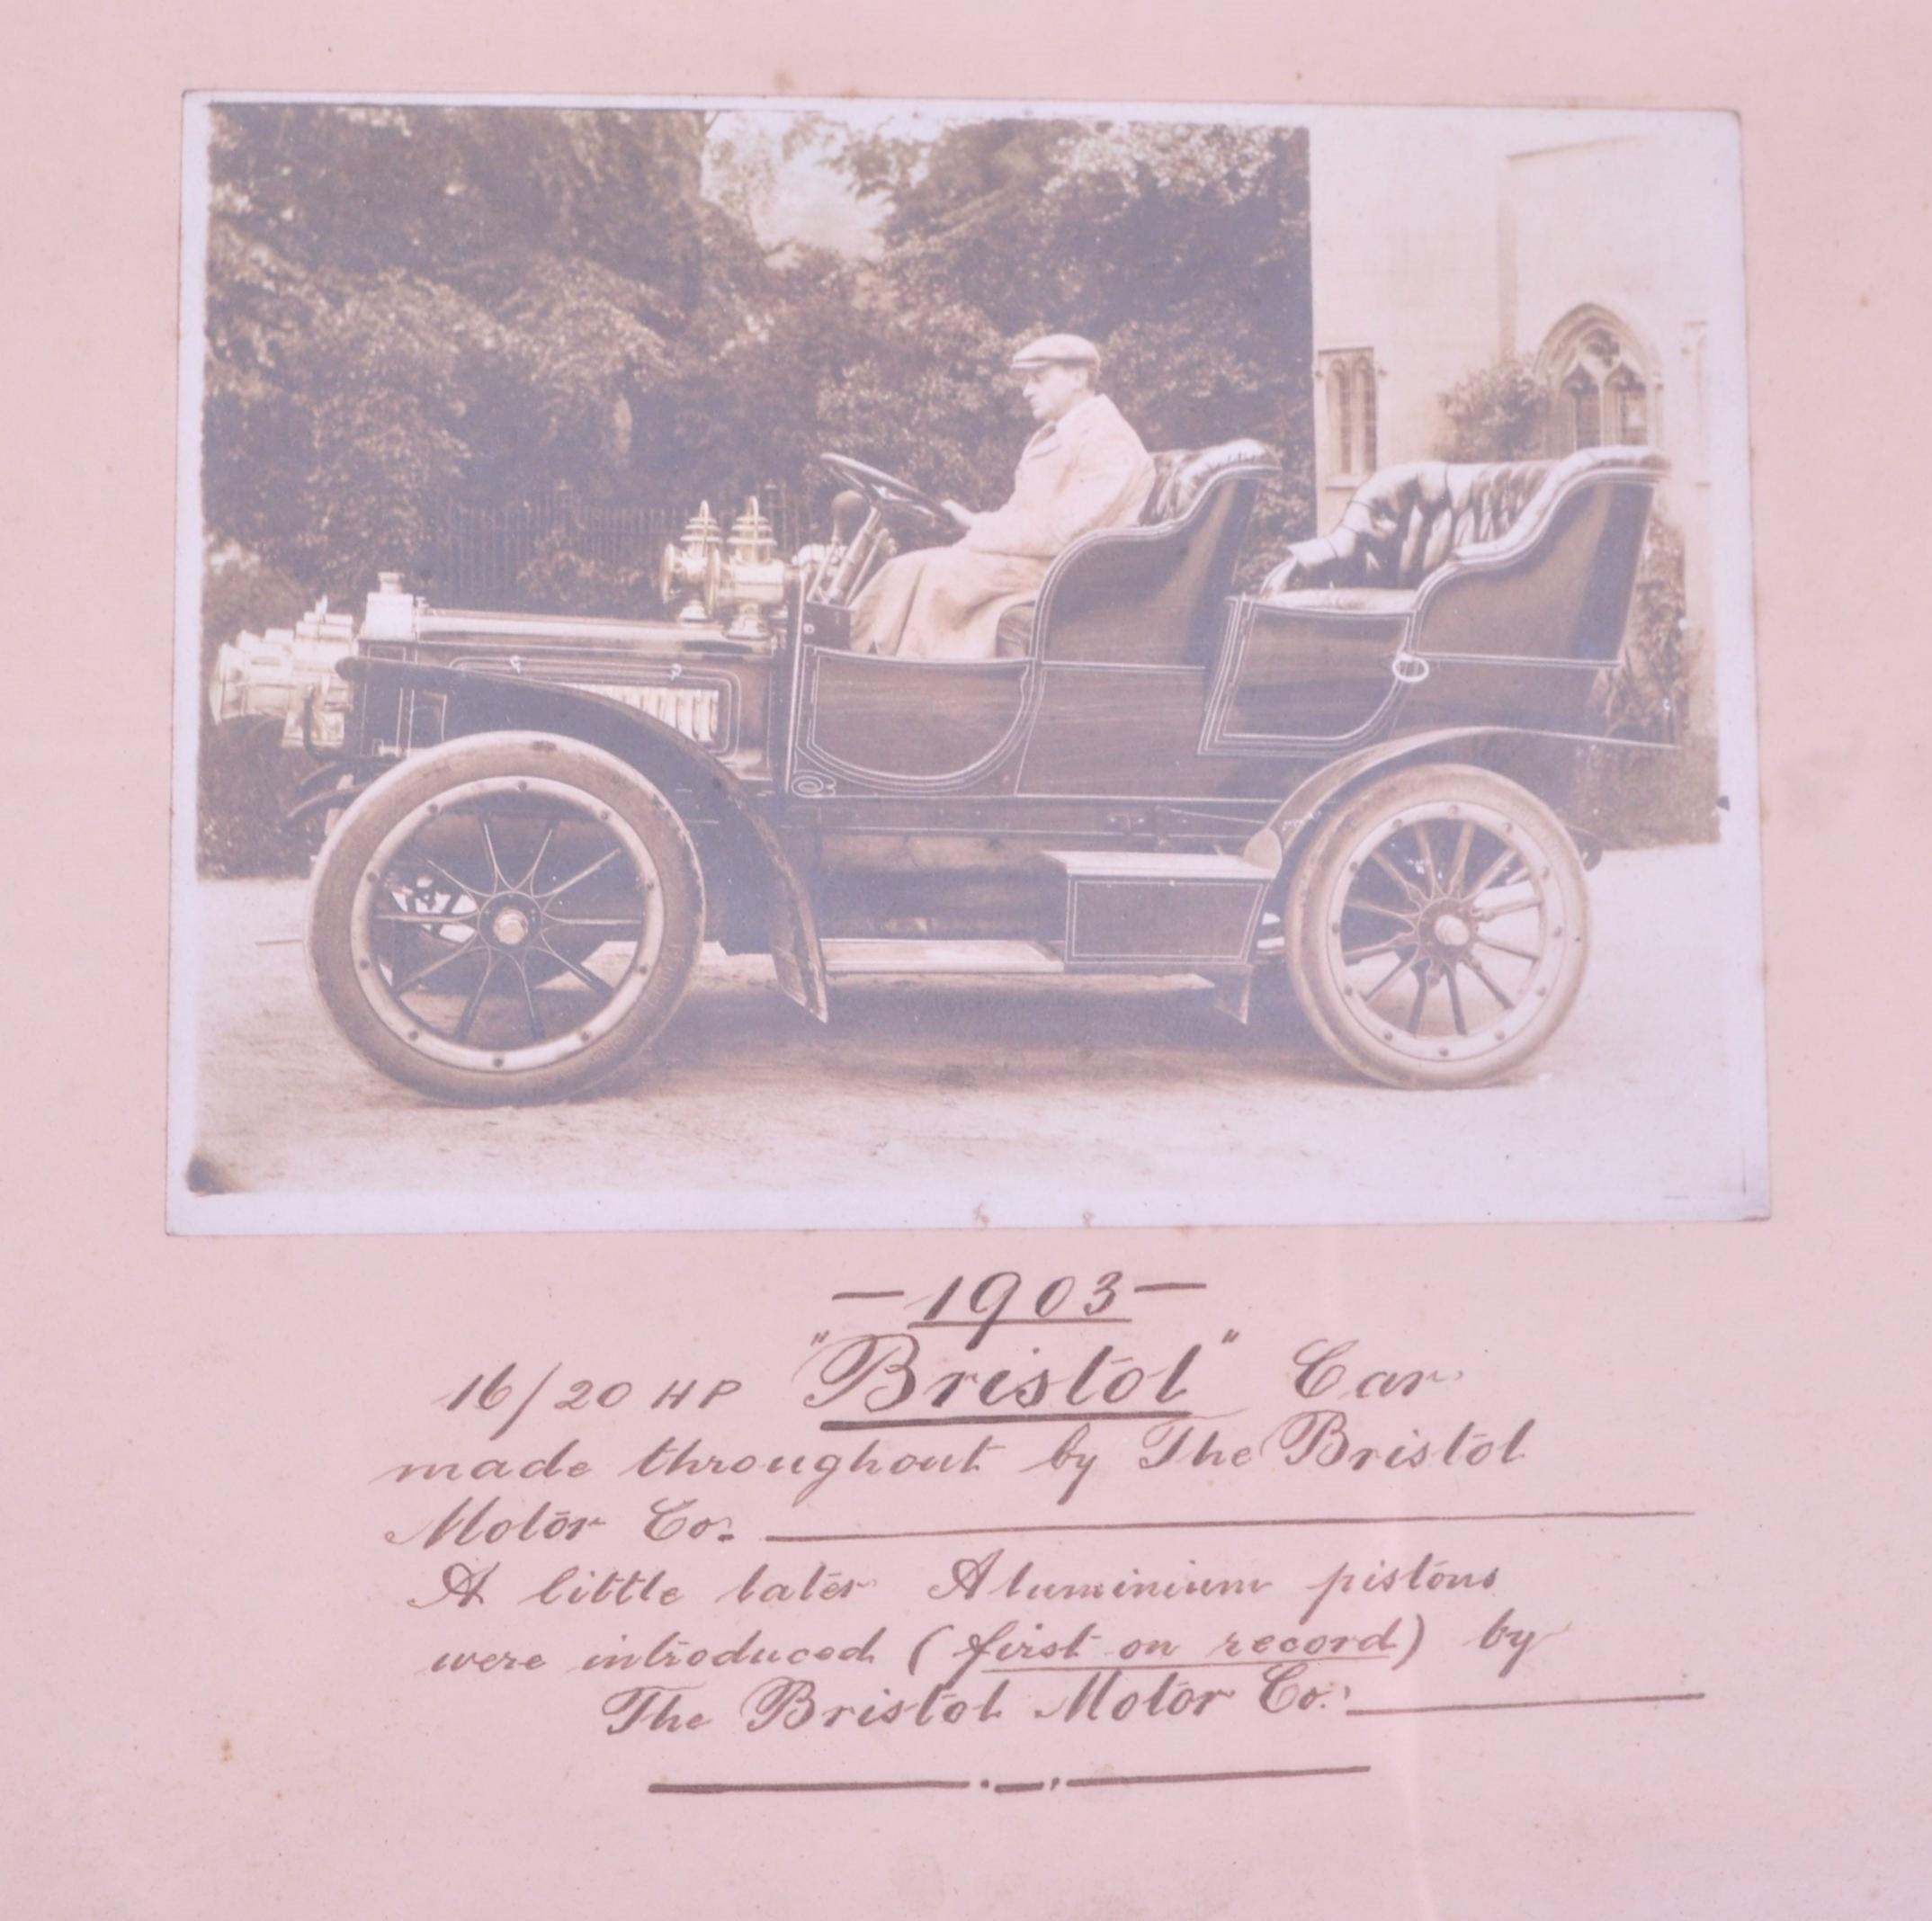 — 1903 —
16/20 HP "Bristol" Car
made throughout by The Bristol
Motor Co.
A little later Aluminium pistons
were introduced (first on record) by
The Bristol Motor Co.